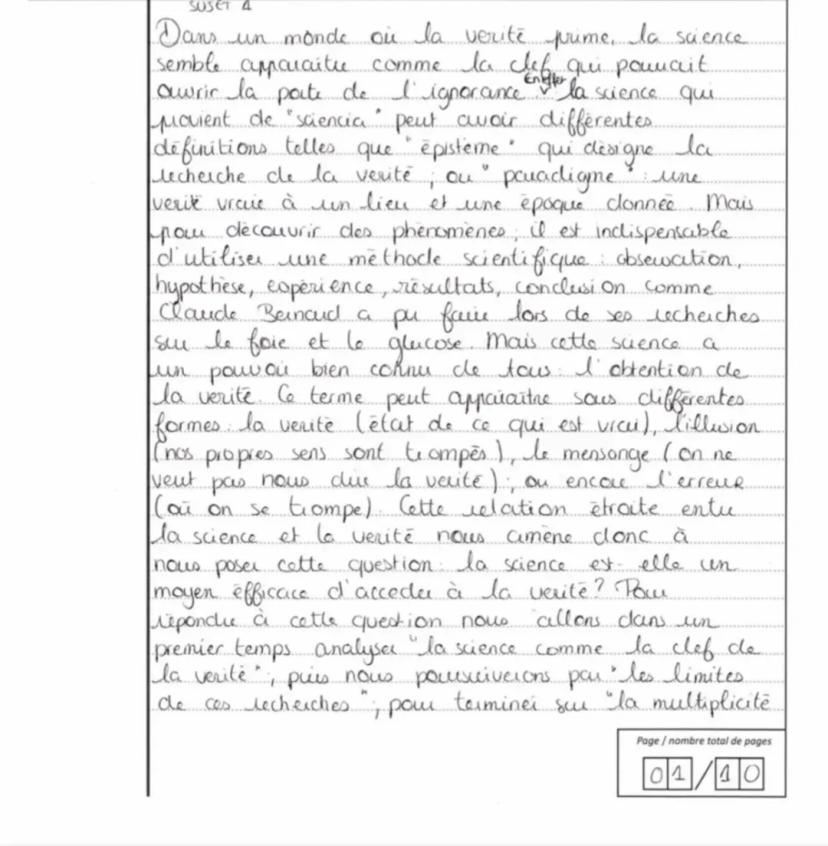 SUJET 1
Dans un monde où la verité prime, la science
semble apparaitre comme la clef qui pourrait
En effet
ouvrir la porte de l'ignorance la science qui
provient de "sciencia" peut avoir différentes
définitions telles que "épistémé" qui désigne la
recherche de la verité ; ou "paradigme" : une
verité vraie à un lieu et une époque donnée. Mais
pour découvrir des phénomènes, il est indispensable
d'utiliser une méthode scientifique : observation,
hypothèse, expérience, résultats, conclusion comme
Claude Bernard a pu faire lors de ses recherches
sur le foie et le glucose. Mais cette science a
un pouvoir bien connu de tous : l'obtention de
la verité. Ce terme peut apparaitre sous différentes
formes : la verité (état de ce qui est vrai), l'illusion
(nos propres sens sont trompés), le mensonge (on ne
veut pas nous dire la verité) ; ou encore l'erreur
(où on se trompe). Cette relation étroite entre
la science et la verité nous amène donc à
nous poser cette question : la science est-elle un
moyen éfficace d'acceder à la verité ? Pour
répondre à cette question nous allons dans un
premier temps analyser "la science comme la clef de
la verité", puis nous poursuiverons par "les limites
de ces recherches", pour terminer sur "la multiplicité
Page / nombre total de pages
01/10